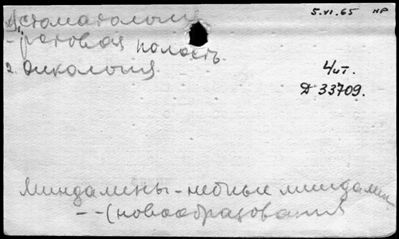 1. стоматология
5.VI.65 НР
- ротовая полость
2. онкология
4 ит.
Д 33709.
Миндалины - небные миндалины
- - (новообразования